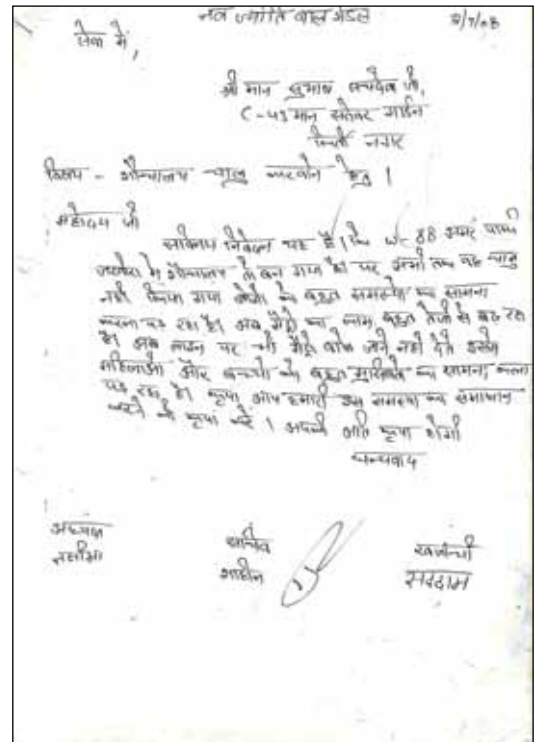 नव ज्योति बाल मंडल
2/7/08
सेवा में,
श्री मान सुभाष सचदेव जी,
C-43 मान सरोवर गार्डन
कीर्ती नगर
विषय - शौचालय चालु करवाने हेतु ।
महोदय जी
सविनय निवेदन यह है । कि W-88 पार्क
में शौचालय तो बन गया है पर अभी तक वह चालु
नहीं किया गया लोगो को बहुत समस्या का सामना
करना पड़ रहा है। अब मैट्रो का काम बहुत तेजी से बढ़ रहा
है। अब लाइन पर भी मैट्रो वाले जाने नहीं देते इससे
महिलाओ और बच्चो को बहुत मुश्किलो का सामना करना
पड़ रहा है। कृपा आप हमारी इस समस्या का समाधान
करने की कृपा करें । आपकी अति कृपा होगी
धन्यवाद
अध्यक्ष
सचिव
खजांची
शाहीन
सद्दाम